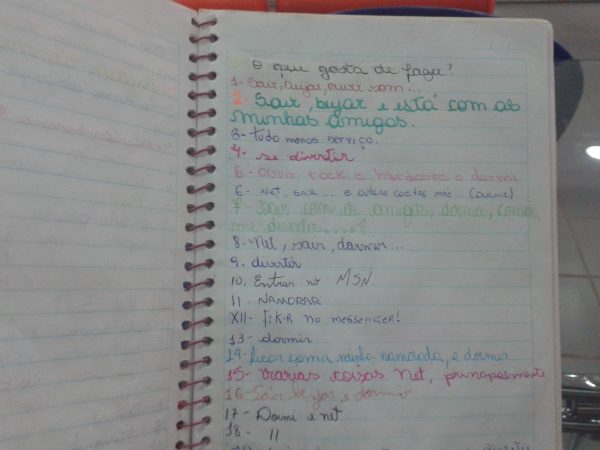 O que gosta de fazer?
1- Sair, beijar, ouvir som...
2- Sair, beijar e está com as
minhas amigas.
3- tudo menos serviço.
4- se divertir
5- Ouvir rock e hardcore e dormi
6- Net, sair ... e outras coctas
7- Sair com os amigos, dormir, comer,
me divertir.....
8- Net, sair, dormir...
9. divertir
10. Entrar no MSN
11. NAMORAR
XII- FIK-R no messenger!
13- dormir
14- Ficar com a minha namorada, e dormir
15- Varias coisas Net, principalmente
16- Sair beijar e dormir
17- Dormi e net
18- 11